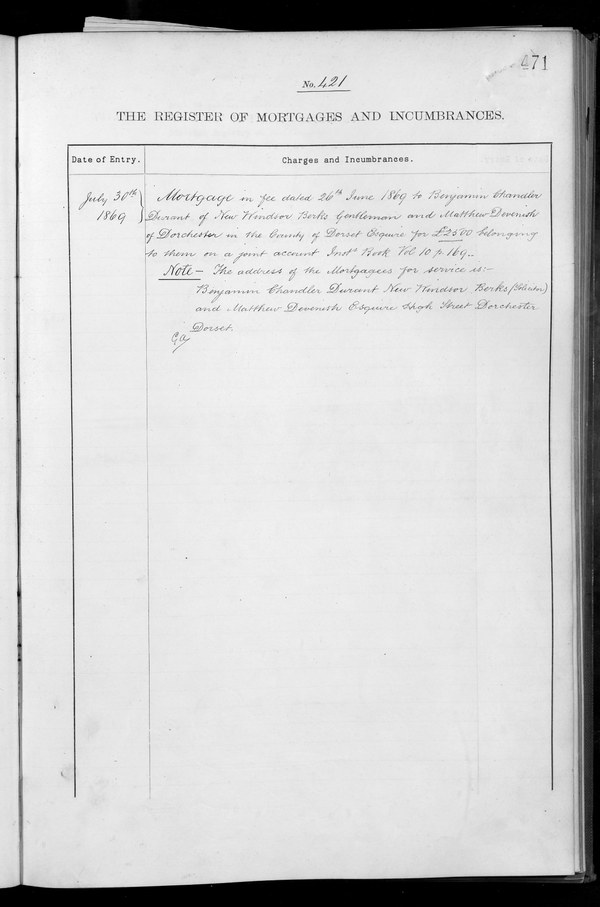 471
No. 421
THE REGISTER OF MORTGAGES AND INCUMBRANCES.
Date of Entry. Charges and Incumbrances.
July 30th 1869 Mortgage in fee dated 26th June 1869 to Benjamin Chandler
Durant of New Windsor Berks Gentleman and Matthew Devenish
of Dorchester in the County of Dorset Esquire for £2500 belonging
to them on a joint account Inst Book Vol 10 p 169 -
Note - The address of the Mortgagees for service is:-
Benjamin Chandler Durant New Windsor Berks (Solicitor)
and Matthew Devenish Esquire High Street Dorchester
Dorset.